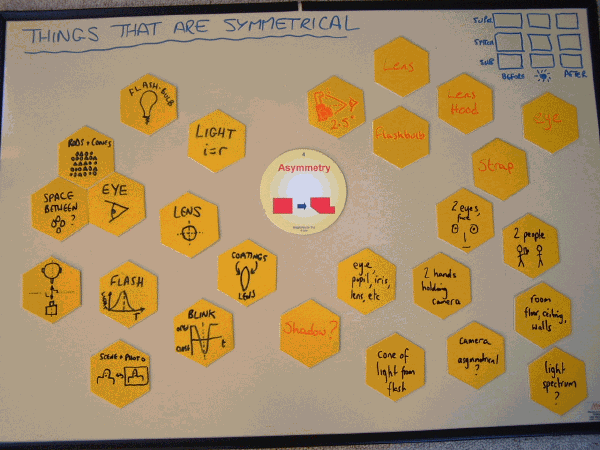 THINGS THAT ARE SYMMETRICAL
SUPR
SYSTEM
SUB
BEFORE
AFTER
FLASH-BULB
LIGHT
i=r
RODS + CONES
SPACE
BETWEEN
?
EYE
LENS
FLASH
T
COATINGS
LENS
BLINK
OPEN
CLOSED
t
SCENE + PHOTO
4
Asymmetry
2.5°
Lens
Lens
Hood
eye
Flashbulb
Strap
2 eyes,
face
2 people
eye
pupil, iris,
lens, etc
2 hands
holding
camera
room
floor, ceiling,
walls
Shadow?
cone of
light from
flash
camera
asymmetrical
?
light
spectrum
?